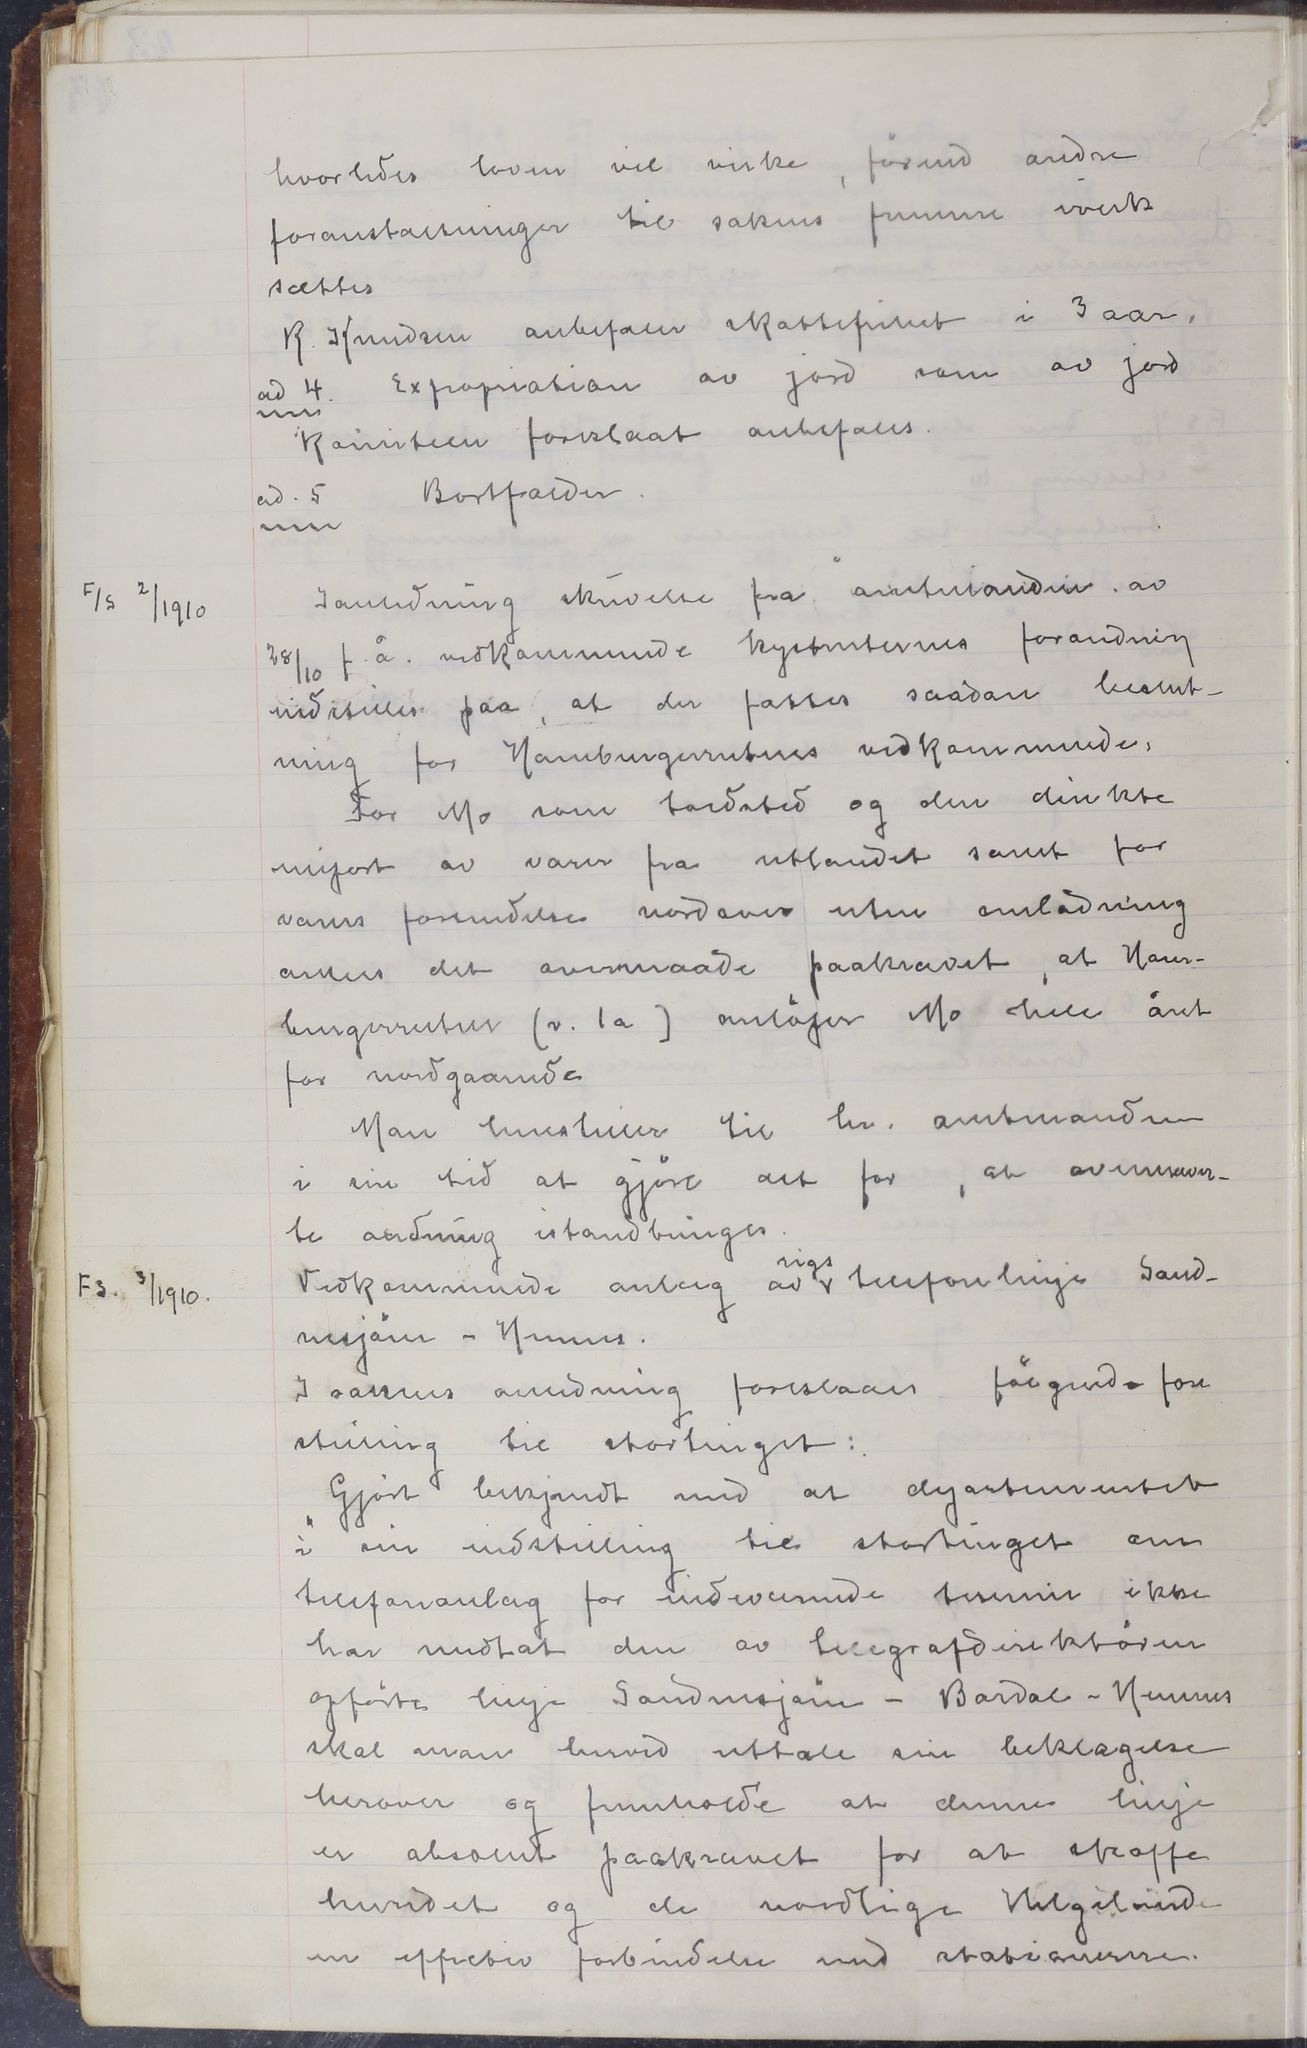 hvorledes loven vil virke, förend andre
foranstaltninger til sakens fremme iverk
sættes
K. Knudsen anbefaler skattefrihet i 3 aar.
ad 4. Expropriation av jord som av jord
Komiteen foreslaat anbefales.
ad. 5 Bortfalder.
F/S 2/1910 I anledning skrivelse fra amtmanden av
28/10 f. å. vedkommende kystruternes forandring
indstilles paa, at der fattes saadan beslut-
ning for Hamburgerrutens vedkommende:
For Mo som toldsted og den direkte
import av varer fra utlandet samt for
varers forsendelse nordover uten omladning
ansees det overmaade paakrævet, at Ham-
burgerruten (r. 1a) anlöper Mo hele året
for nordgaaende
Man henstiller til hr. amtmanden
i sin tid at gjöre alt for, at ovennævn-
te ordning istandbringes.
FS. 3/1910. Vedkommende anlæg av rigstelefonlinje Sand-
nesjöen - Hemnes.
I sakens anledning foreslaaes fölgende fore
stilling til stortinget:
"Gjort bekjendt med at departementet
i sin indstilling til stortinget om
telefonanlæg for indeværende termin ikke
har medtat den av telegrafdirektören
opförte linje Sandnesjöen - Bardal - Hemnes
skal man herved uttale sin beklagelse
herover og fremholde at denne linje
er absolut paakrævet for at skaffe
herredet og de nordlige Helgeland
en effektiv forbindelse med stationerne.